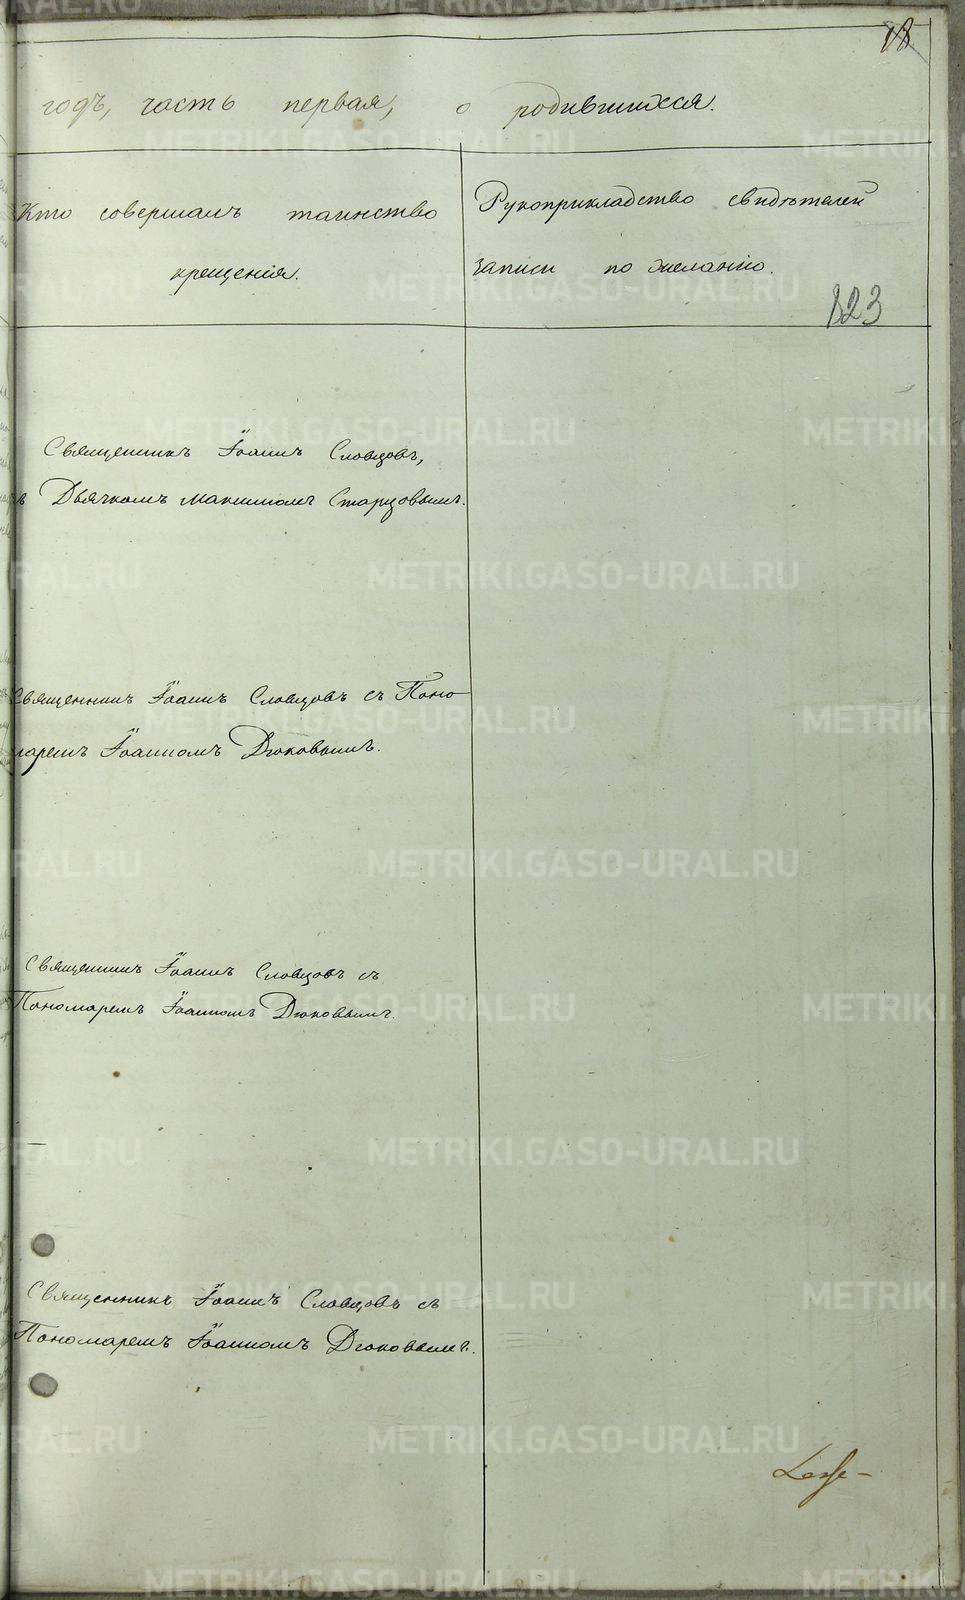 18
годъ, часть первая, о родившихся.
Кто совершалъ таинство
крещенія.
Рукоприкладство свидѣтелей
записи по желанію.
823
Священникъ Іоаннъ Словцовъ,
съ Дьячкомъ Максимомъ Старцовымъ.
Священникъ Іоаннъ Словцовъ съ Поно
маремъ Іоанномъ Дюковымъ.
Священникъ Іоаннъ Словцовъ съ
Пономаремъ Іоанномъ Дюковымъ.
Священникъ Іоаннъ Словцовъ съ
Пономаремъ Іоанномъ Дюковымъ.
METRIKI.GASO-URAL.RU